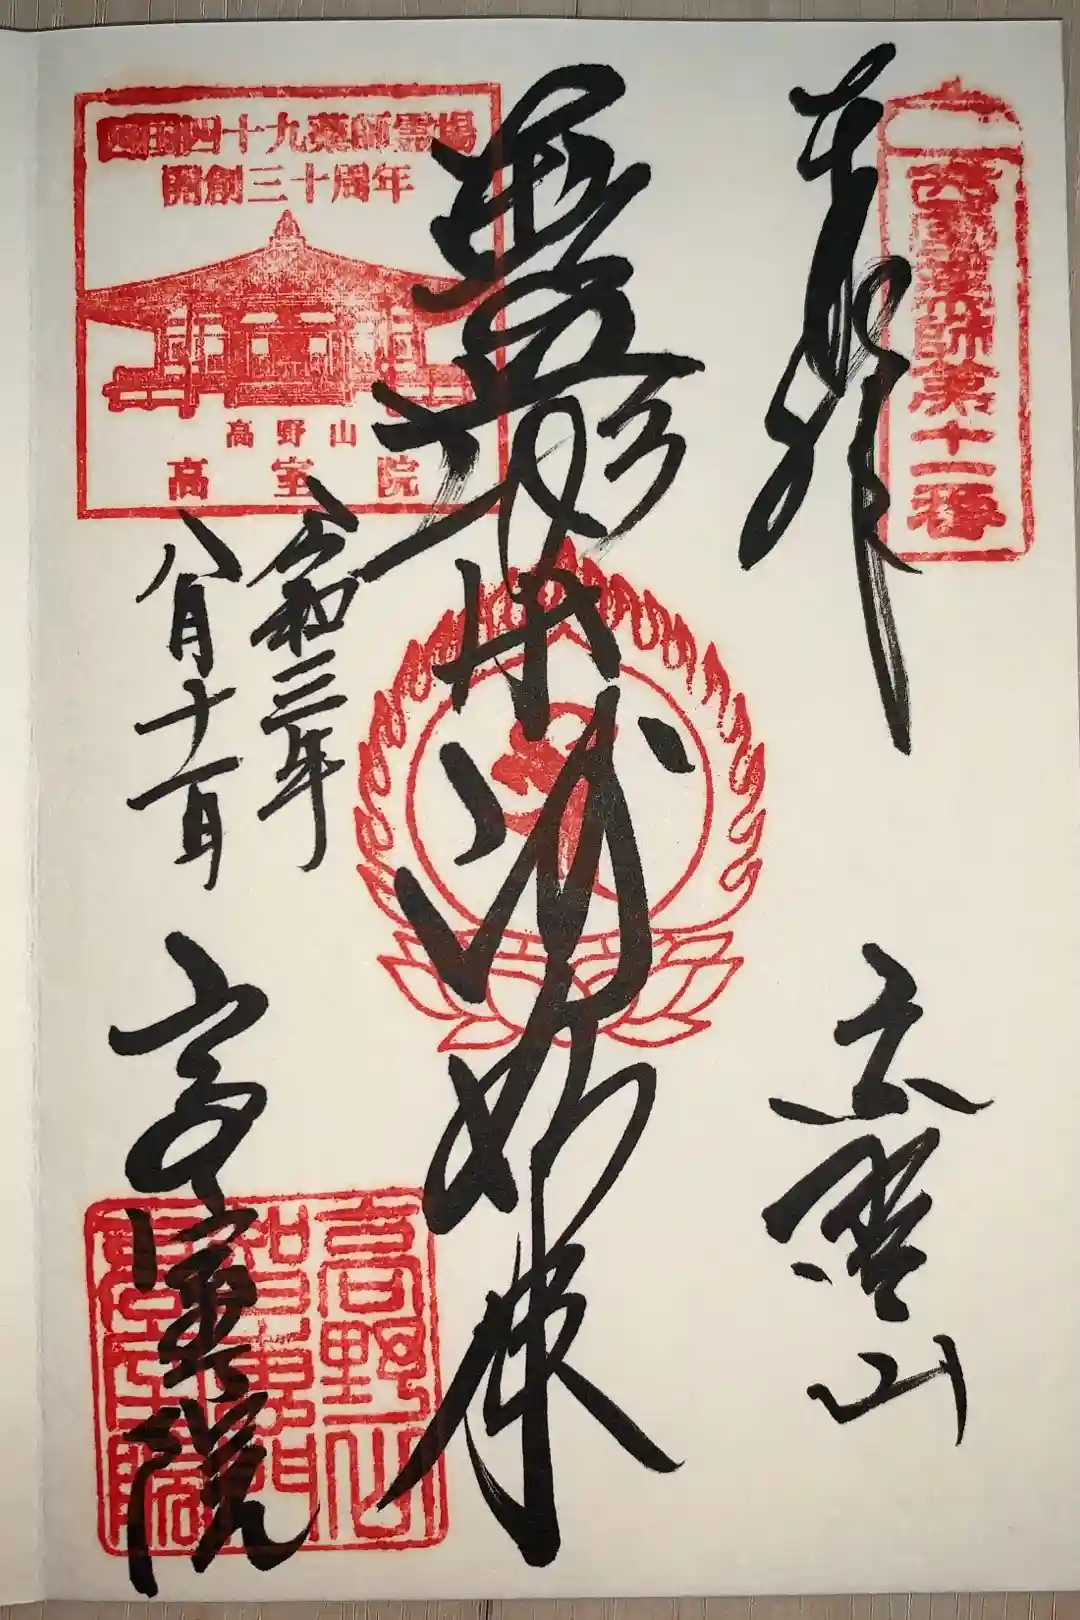 奉拝
西国薬師第十一番
高野山
如来
四十九薬師霊場
開創三十周年
高野山
高室院
令和三年
八月十一日
高室院
高野山
高室院